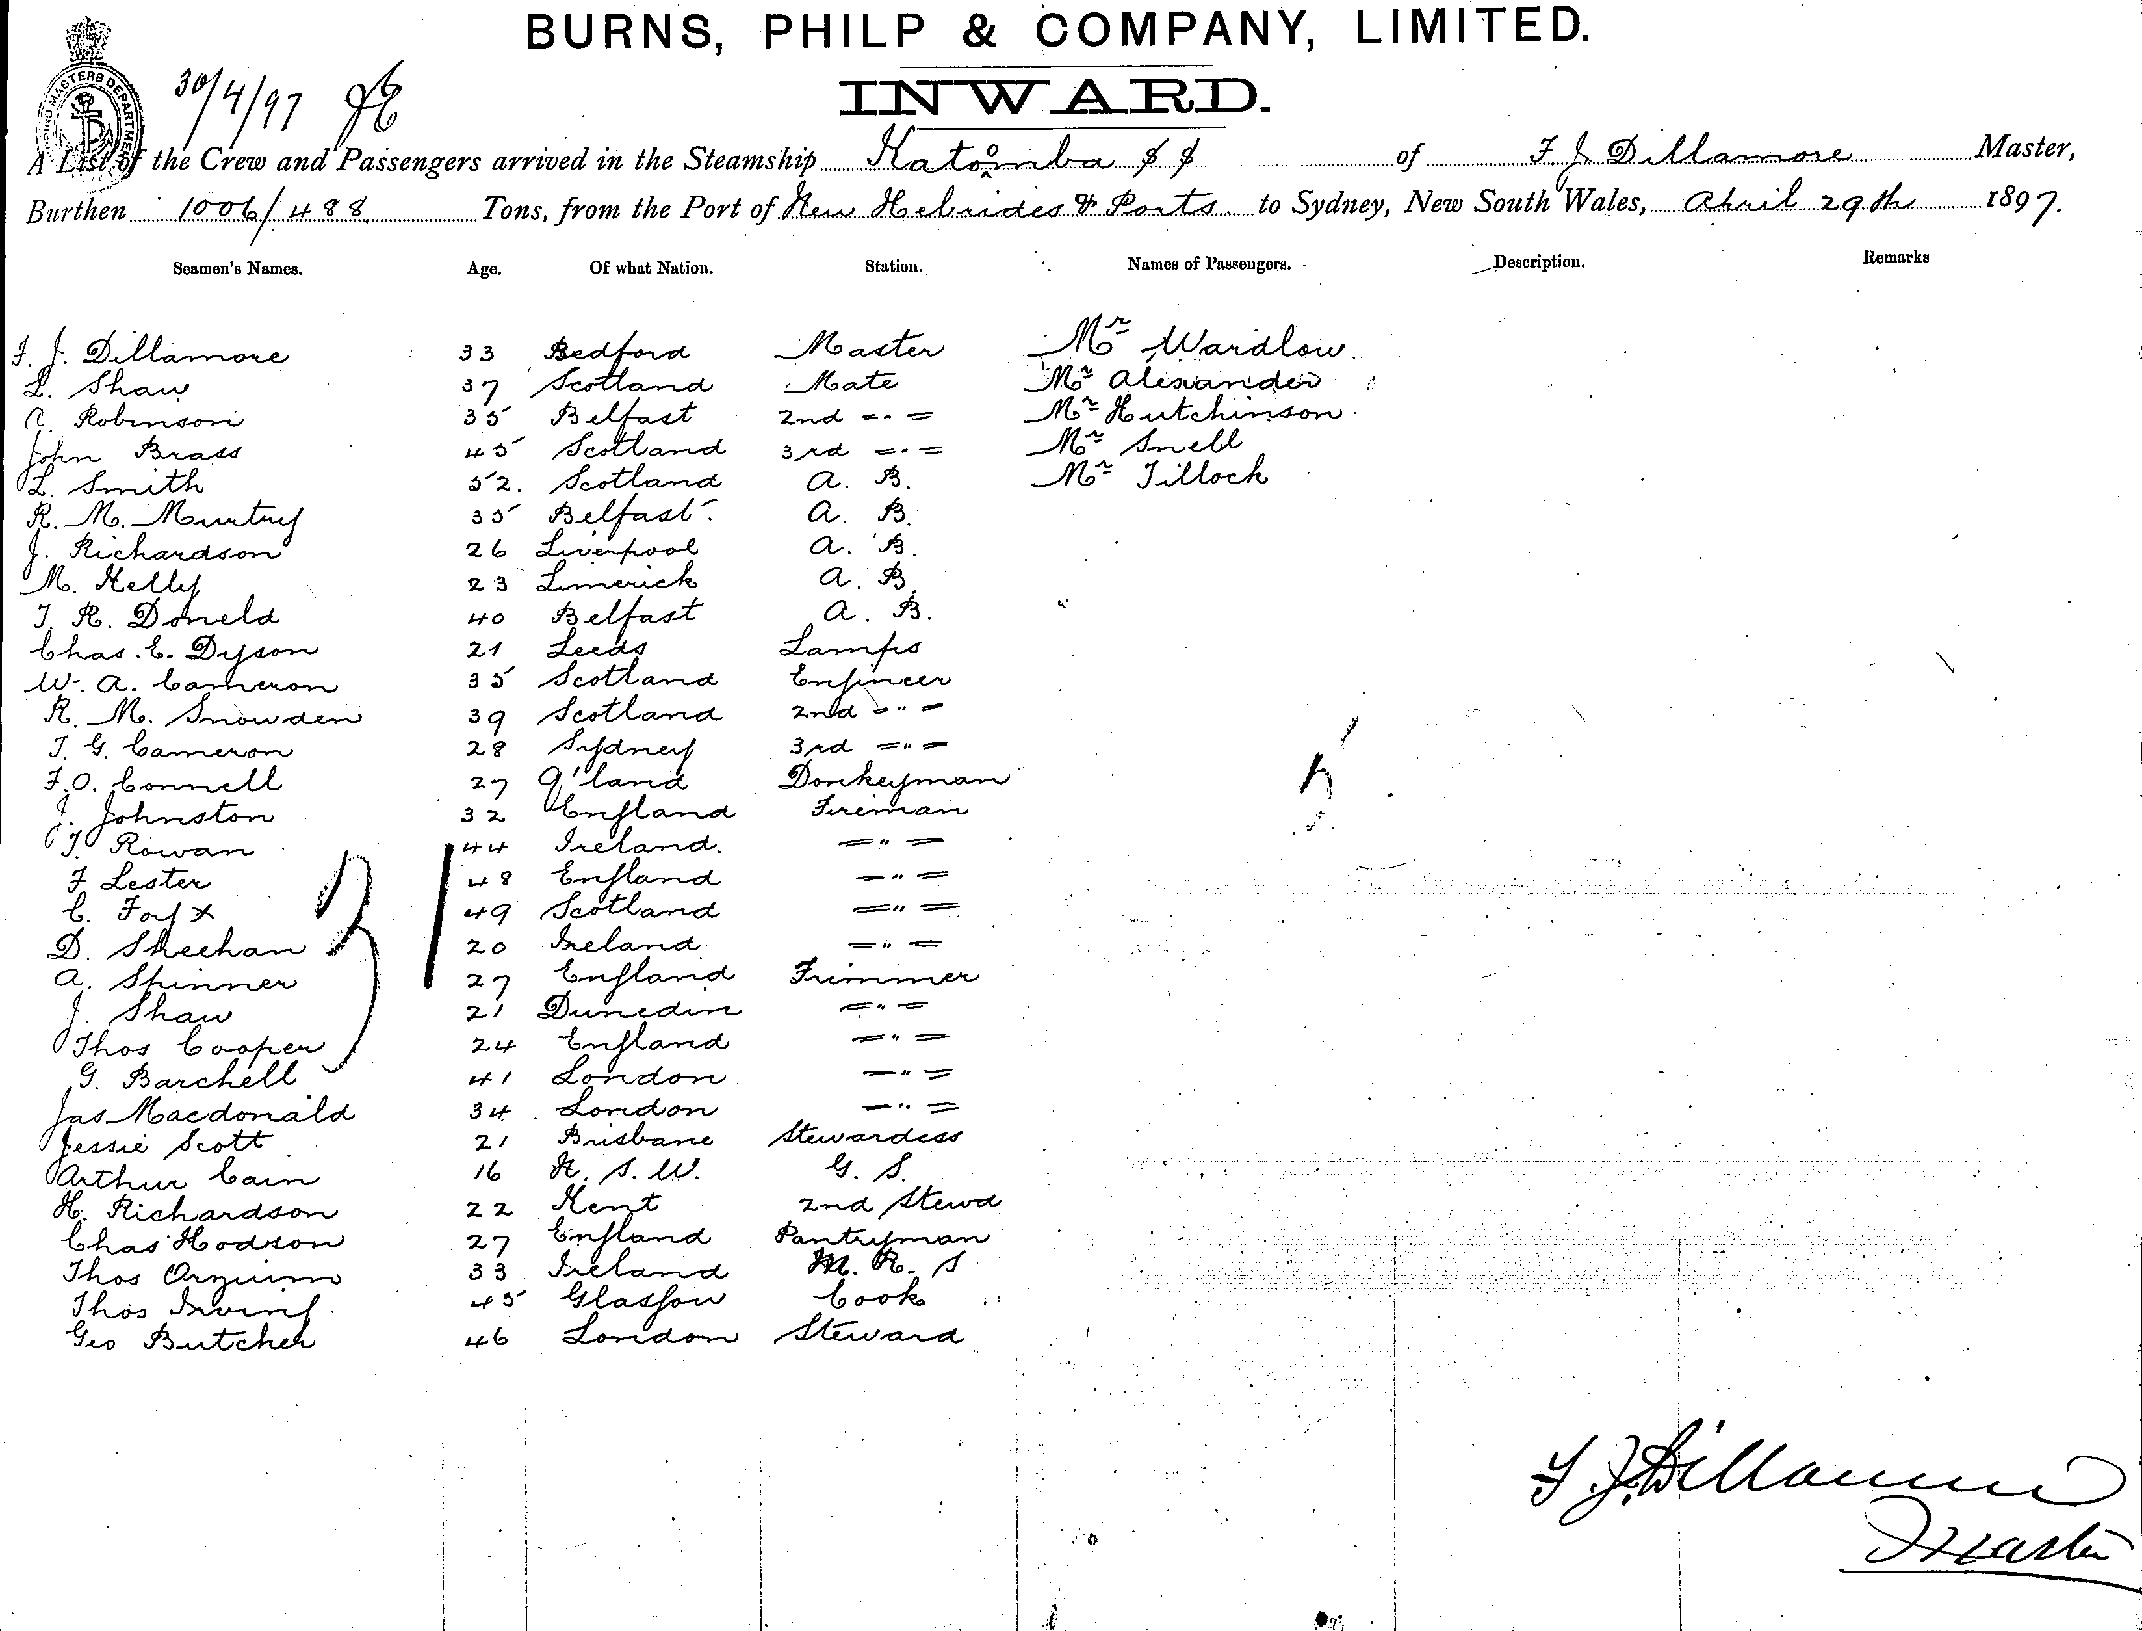 BURNS, PHILP & COMPANY, LIMITED.
INWARD.
30/4/97
A List of the Crew and Passengers arrived in the Steamship Katoomba SS of F J Dillamore Master,
Burthen 1006/488 Tons, from the Port of New Hebrides & Ports to Sydney, New South Wales, April 29th 1897.
Seamen's Names. Age. Of what Nation. Station. Names of Passengers. Description. Remarks
F. J. Dillamore 33 Bedford Master Mr Wardlow.
L. Shaw 37 Scotland Mate Mr Alexander
A. Robinson 35 Belfast 2nd =.= Mr Hutchinson
John Brass 45 Scotland 3rd =.= Mr Snell
L. Smith 52. Scotland A. B. Mr Tillock
R. M. Murtry 35 Belfast. A. B.
J. Richardson 26 Liverpool A. B.
M. Kelly 23 Limerick A. B.
T. R. Doneld 40 Belfast A. B.
Chas. E. Dyson 21 Leeds Lamps
W. A. Cameron 35 Scotland Engineer
R. M. Snowden 39 Scotland 2nd =„=
T. G. Cameron 28 Sydney 3rd =„=
F. O. Connell 27 Q'land Donkeyman
J. Johnston 32 England Fireman
T. Rowan 44 Ireland. =„=
F Lester 48 England =„=
C. Foy x 49 Scotland =„=
D. Sheehan 20 Ireland =„=
A. Spinner 27 England Trimmer
J. Shaw 21 Dunedin =„=
Thos Cooper 24 England =„=
G. Barchell 41 London =„=
Jas Macdonald 34 London =„=
Jessie Scott 21 Brisbane Stewardess
Arthur Cain 16 N. S. W. G. S.
H. Richardson 22 Kent 2nd Stewd
Chas Hodson 27 England Pantryman
Thos 33 Ireland M. R. S
Thos Irving 45 Glasgow Cook
Geo Butcher 46 London Steward
F J Dillamore
Master